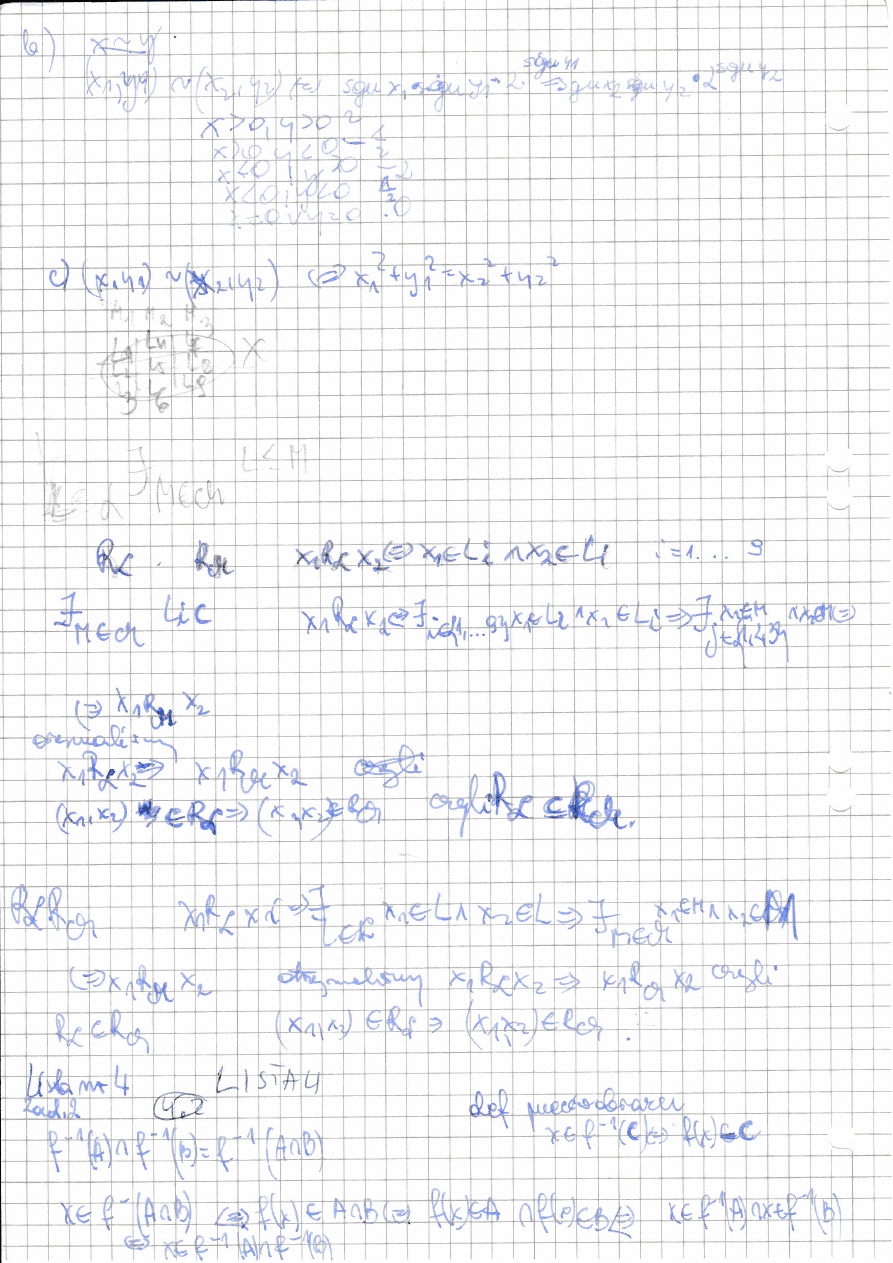 b) x ~ y
(x₁, y₁) ~ (x₂, y₂) ⇔ sgn x₁ · sgn y₁ · 2^sgn y₁ = sgn x₂ sgn y₂ · 2^sgn y₂
x > 0, y > 0 2
x > 0 y < 0 - 1/2
x < 0 , y > 0 - 2
x < 0 , y < 0 1/2
x = 0 ∨ y = 0 0
c) (x₁, y₁) ~ (x₂, y₂) ⇔ x₁² + y₁² = x₂² + y₂²
M₁ M₂ M₃
X
3 6
∃ M∈𝓜 L ⊆ M
R_𝓛 . R_𝓜 x₁R_𝓛x₂ ⇔ x₁ ∈ Li ∧ x₂ ∈ Li i = 1 ... 9
∃ M∈𝓜 Li ⊂ x₁R_𝓛x₂ ⇔ ∃ i∈{1,...9} x₁ ∈ Li ∧ x₁ ∈ Li ⇒ ∃ x₁∈M ∧ x₂∈M ⇔
⇔ x₁R_𝓜x₂
x₁R_𝓛x₂ ⇒ x₁R_𝓜x₂ czyli
(x₁, x₂) ∈ R_𝓛 ⇒ (x₁, x₂) ∈ R_𝓜 czyli R_𝓛 ⊆ R_𝓜.
R_𝓛 R_𝓜 x₁R_𝓛x₂ ⇒ ∃ L∈𝓛 x₁ ∈ L ∧ x₂ ∈ L ⇒ ∃ M∈𝓜 x₁∈M ∧ x₂∈M
⇔ x₁R_𝓜x₂ otrzymaliśmy x₁R_𝓛x₂ ⇒ x₁R_𝓜x₂ czyli
R_𝓛 ⊂ R_𝓜 (x₁, x₂) ∈ R_𝓛 ⇒ (x₁, x₂) ∈ R_𝓜.
Lista nr 4 LISTA 4
Zad. 2 4.2 def przeciwobrazu
x ∈ f⁻¹(C) ⇔ f(x) ∈ C
f⁻¹(A) ∩ f⁻¹(B) = f⁻¹(A∩B)
x ∈ f⁻¹(A∩B) ⇔ f(x) ∈ A∩B ⇔ f(x) ∈ A ∧ f(x) ∈ B ⇔ x ∈ f⁻¹(A) ∧ x ∈ f⁻¹(B)
⇔ x ∈ f⁻¹(A) ∩ f⁻¹(B)